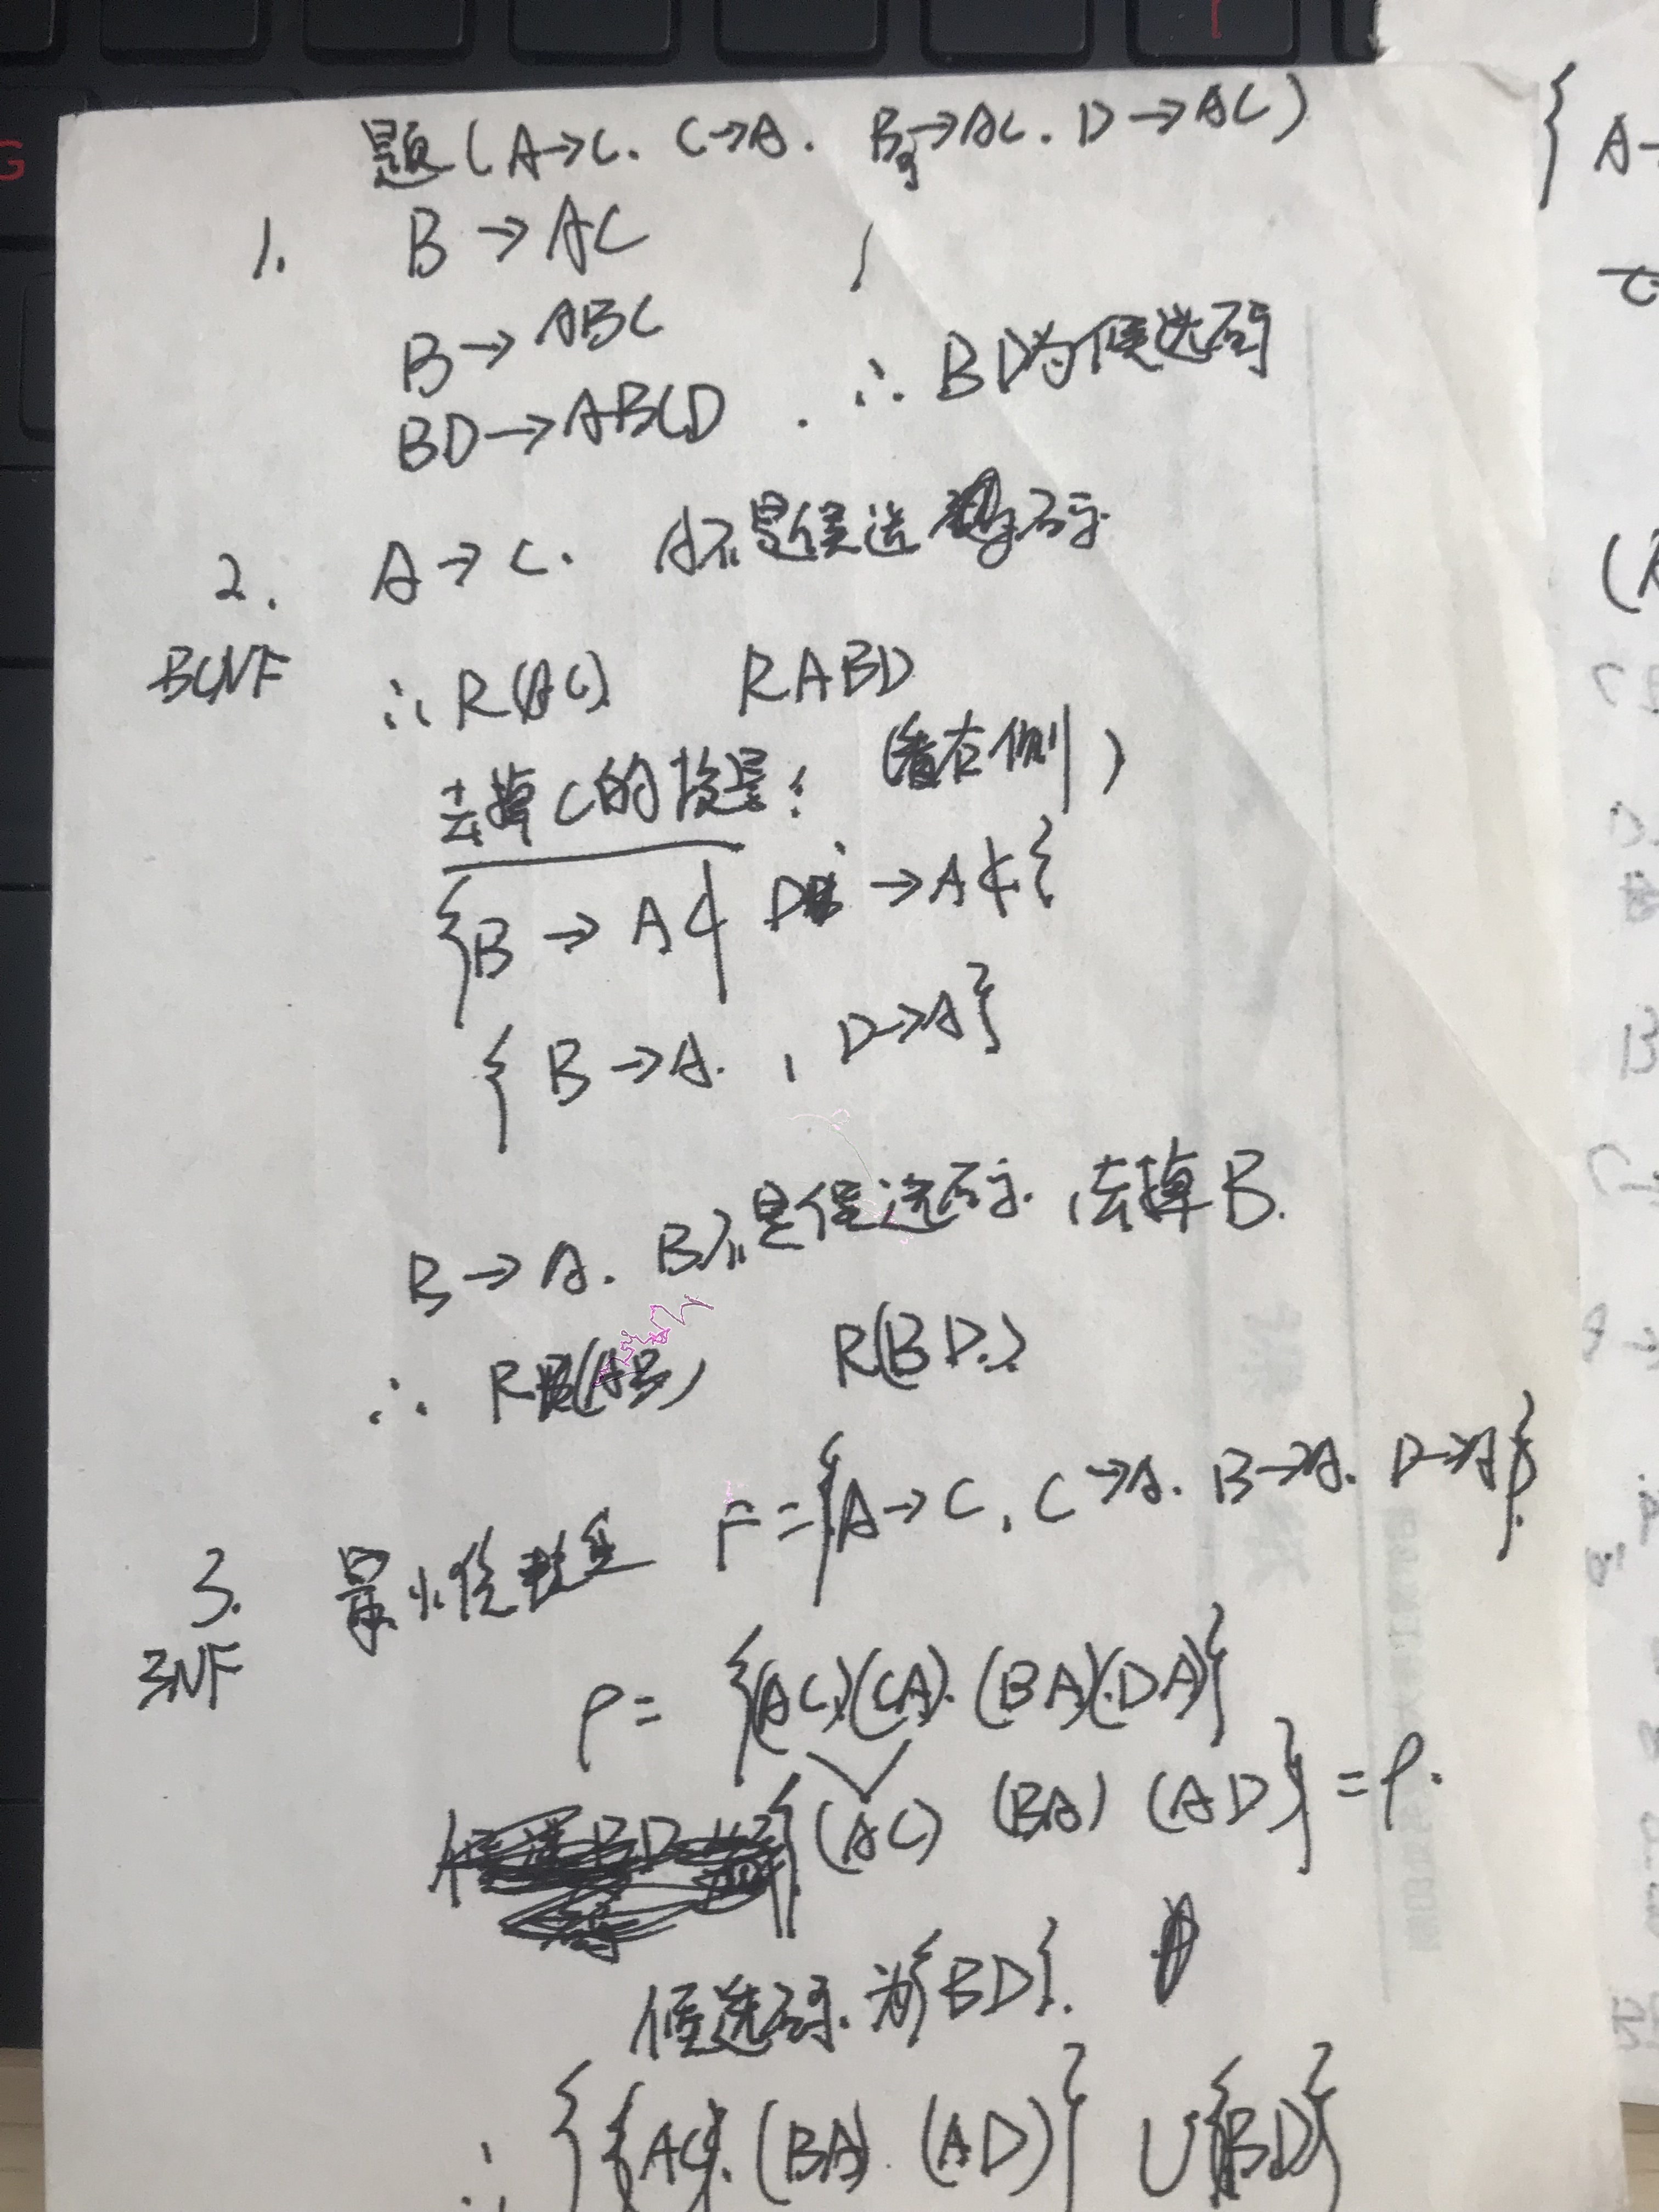 题(A→C. C→A. B→AC. D→AC)
1. B→AC
B→ABC
BD→ABCD . ∴ BD为候选码
2. A→C. A不是候选码.
BCNF ∴ R(AC) RABD
去掉C的 (看右侧)
{B→AC D→AC}
{B→A. , D→A}
B→A. B不是候选码. 去掉B.
∴ R(AB) R(BD)
3. 最小依赖集 F={A→C, C→A. B→A. D→A}.
3NF
ρ= {(AC)(CA).(BA)(DA)}
{(AC) (BA) (AD)} =ρ.
候选码.为{BD}.
∴ {(AC).(BA).(AD)} ∪{BD}
{ A→